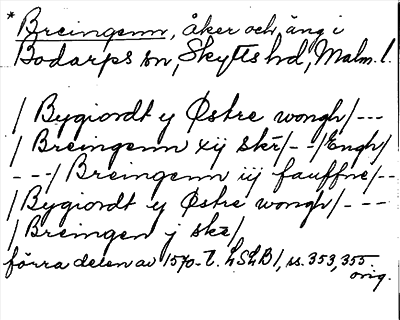 * Breingenn, åker och äng i
Bodarps sn, Skytts hd, Malm. l.
/ Bygiordt y Østre wongh / ---
/ Breingenn xij skr̄ / - - / Engh /
- - - / Breingenn iij fauffne / --
/ Bygiordt y Østre wongh / - --
/ Breingen j skr̄ /
förra delen av 1570-t. LSLB1, ss. 353, 355
orig.